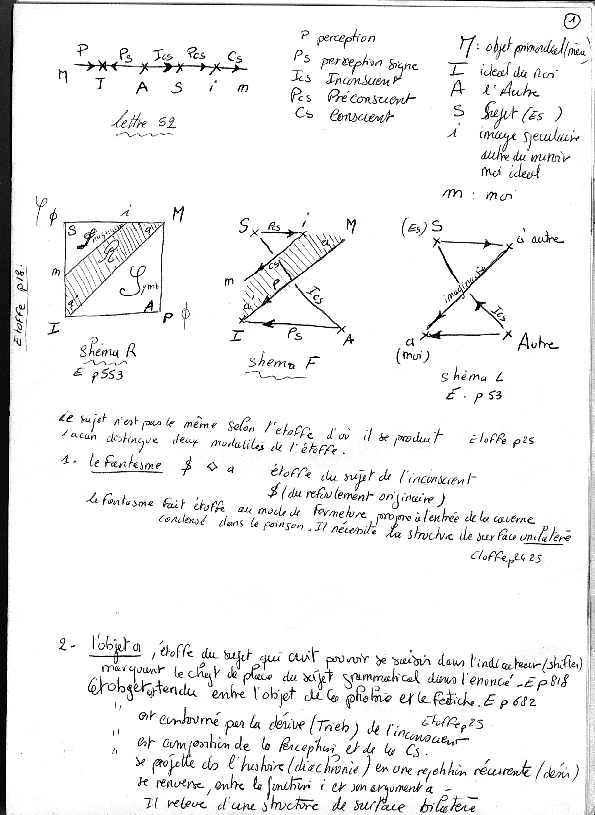 1
P Ps Ics Pcs Cs
M I A S i m
lettre 52
P perception
Ps perception signe
Ics Inconscient
Pcs Préconscient
Cs Conscient
M : objet primordial
I ideal du moi
A l'Autre
S Sujet (Es)
i image spéculaire
autre du miroir
moi ideal
m : moi
φ ϕ i M
S
m
a
Symb
I A P ϕ
Shéma R
E p553
Etoffe p18.
S Pcs i M
a
m Cs P Ics
a
I Ps A
Shema F
(Es) S a' autre
imaginaire
Ics
a Autre
(moi)
Shéma L
E. p 53
Le sujet n'est pas le même selon l'étoffe d'où il se produit Etoffe p25
Lacan distingue deux modalités de l'étoffe.
1. le Fantasme $ ◇ a étoffe du sujet de l'inconscient
$ (du refoulement originaire)
le fantasme fait étoffe au mode de fermeture propre à l'entrée de la caverne
condensé dans le poinçon. Il nécessite la structure de surface unilatère
Etoffe p24 25
2 - l'objet a, étoffe du sujet qui croit pouvoir se saisir dans l'indicateur (shifter)
marquant le chgt de place du sujet grammatical dans l'énoncé - E p 818
Cet objet, tendu entre l'objet de la phobie et le fétiche. E p 682
" est contourné par la dérive (Trieb) de l'inconscient Etoffe p25
" est composition de la Perception et de la Cs.
" se projette ds l'histoire (diachronie) en une répétition récurrente (désir)
se renverse, entre la fonction i et son argument a
Il relève d'une structure de surface bilatère